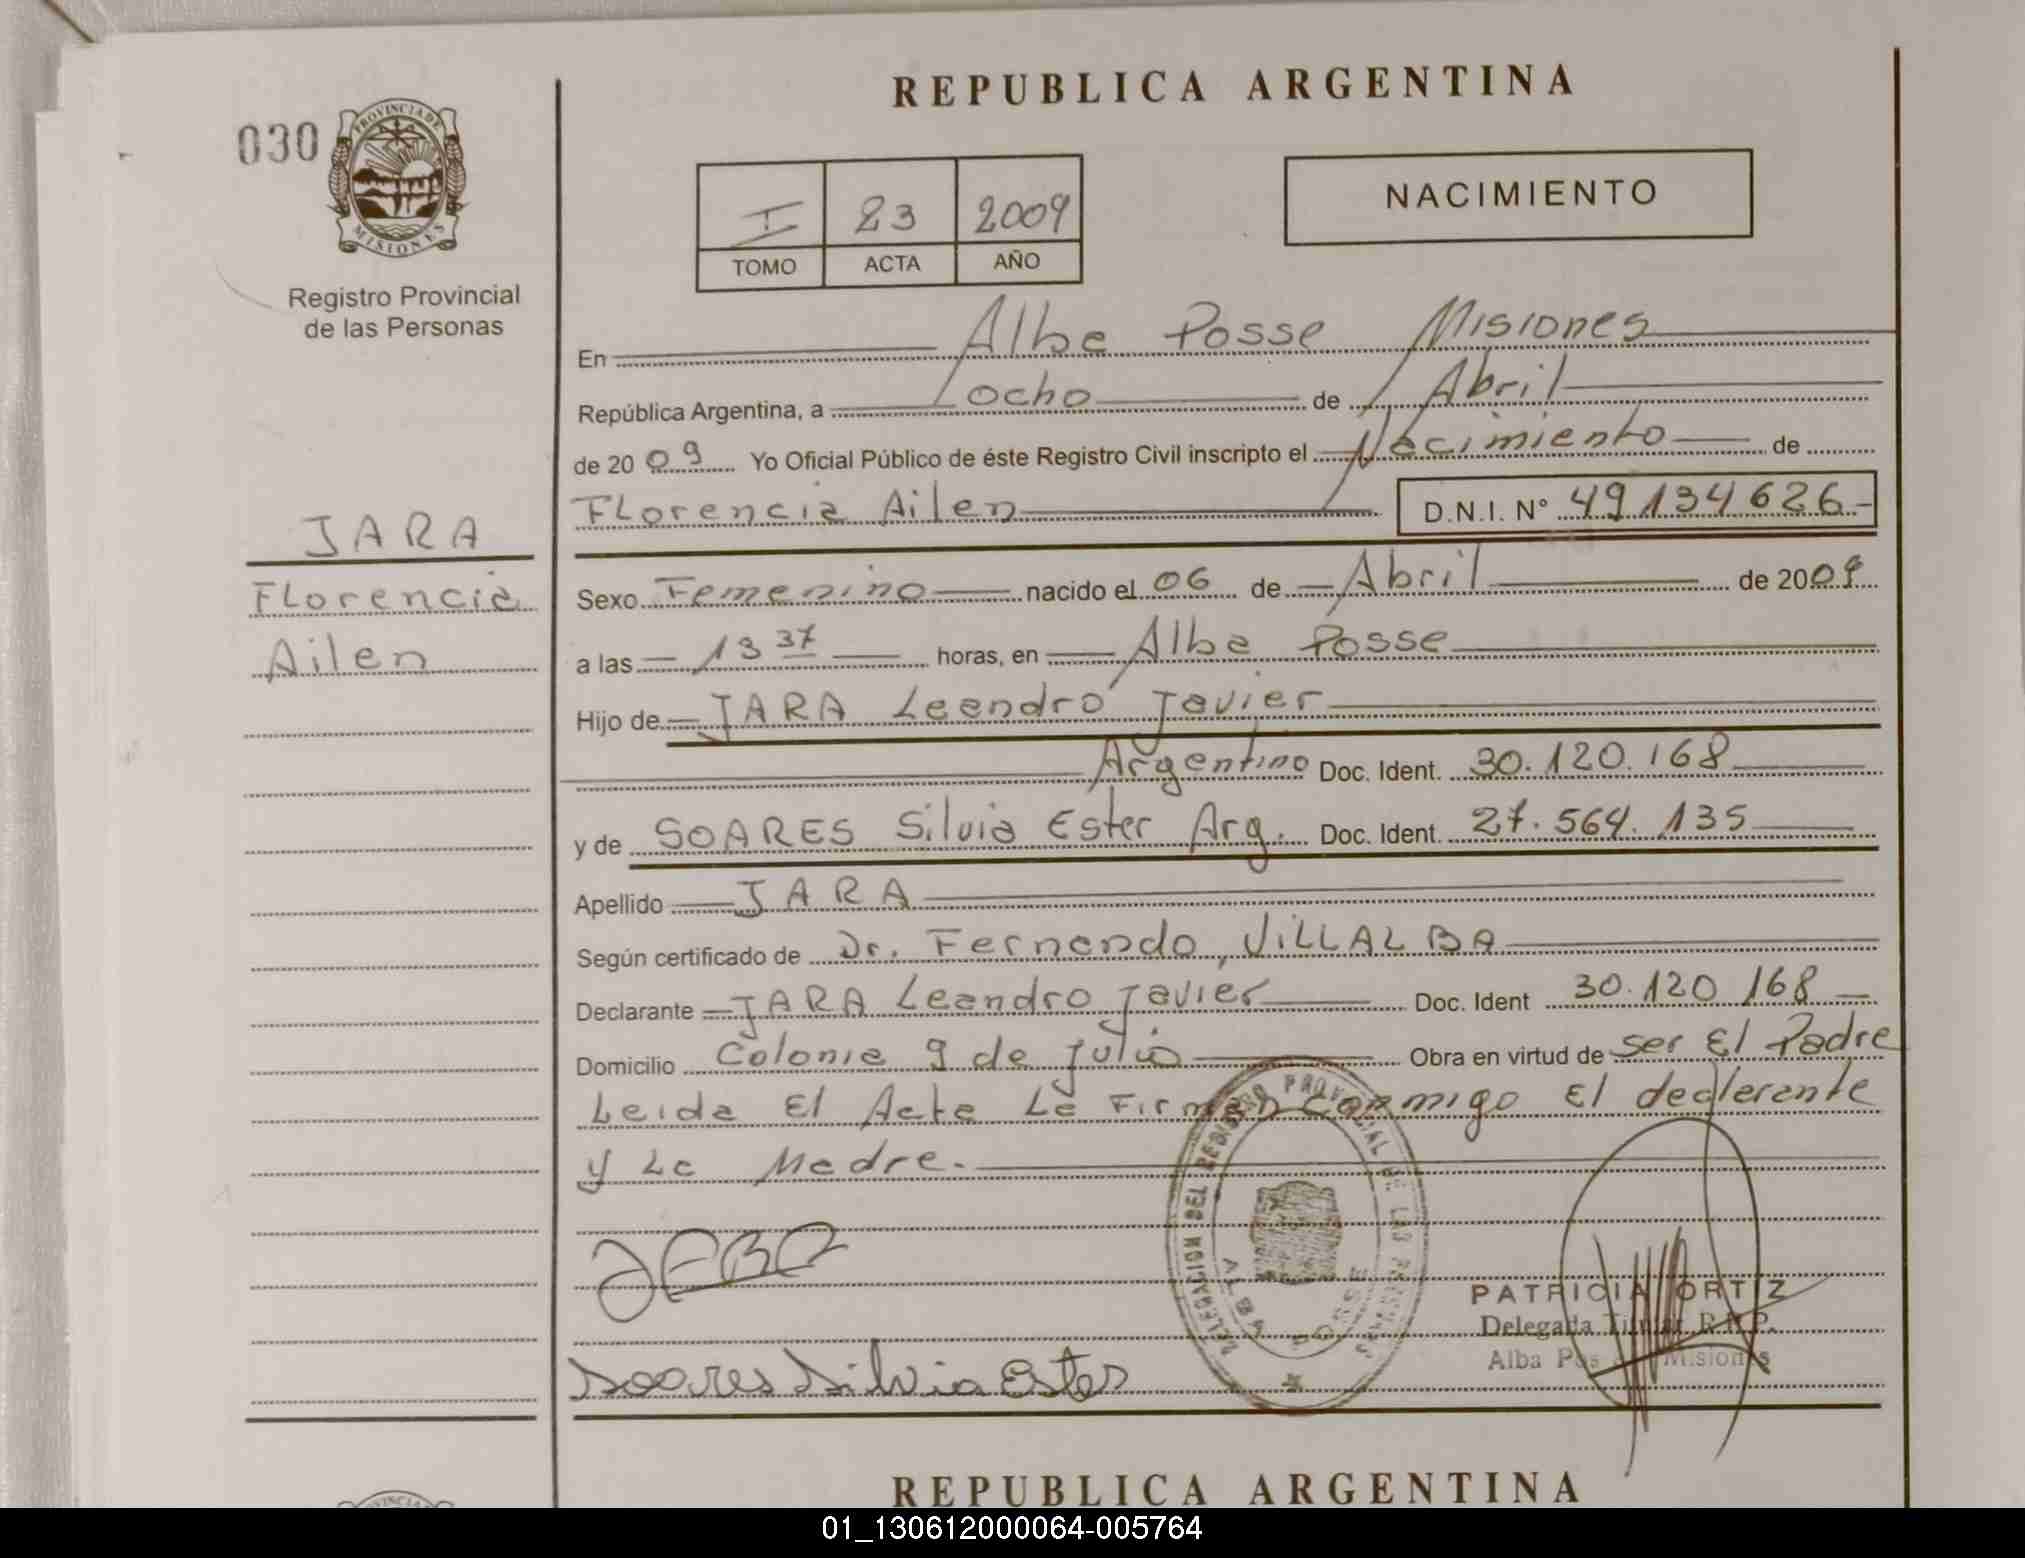 REPUBLICA ARGENTINA
030
PROVINCIA DE
MISIONES
Registro Provincial
de las Personas
I 23 2009
TOMO ACTA AÑO
NACIMIENTO
En Alba Posse Misiones
República Argentina, a ocho de Abril
de 2009 Yo Oficial Público de éste Registro Civil inscripto el Nacimiento de
Florencia Ailen D.N.I. N° 49134626
JARA
Florencia
Ailen
Sexo Femenino nacido el 06 de Abril de 2009
a las 13 37 horas, en Alba Posse
Hijo de JARA Leandro Javier
Argentino Doc. Ident. 30.120.168
y de SOARES Silvia Ester Arg. Doc. Ident. 27.564.135
Apellido JARA
Según certificado de Dr. Fernando VILLALBA
Declarante JARA Leandro Javier Doc. Ident 30.120 168
Domicilio Colonia 9 de Julio Obra en virtud de ser El Padre
Leida El Acta La Firman Conmigo El declarante
y La Madre.
DELEGACION DEL REGISTRO PROVINCIAL DE LAS PERSONAS
ALBA POSSE
PATRICIA ORTIZ
Delegada Titular R.P.P.
Alba Posse Misiones
Soares Silvia Ester
REPUBLICA ARGENTINA
01_130612000064-005764